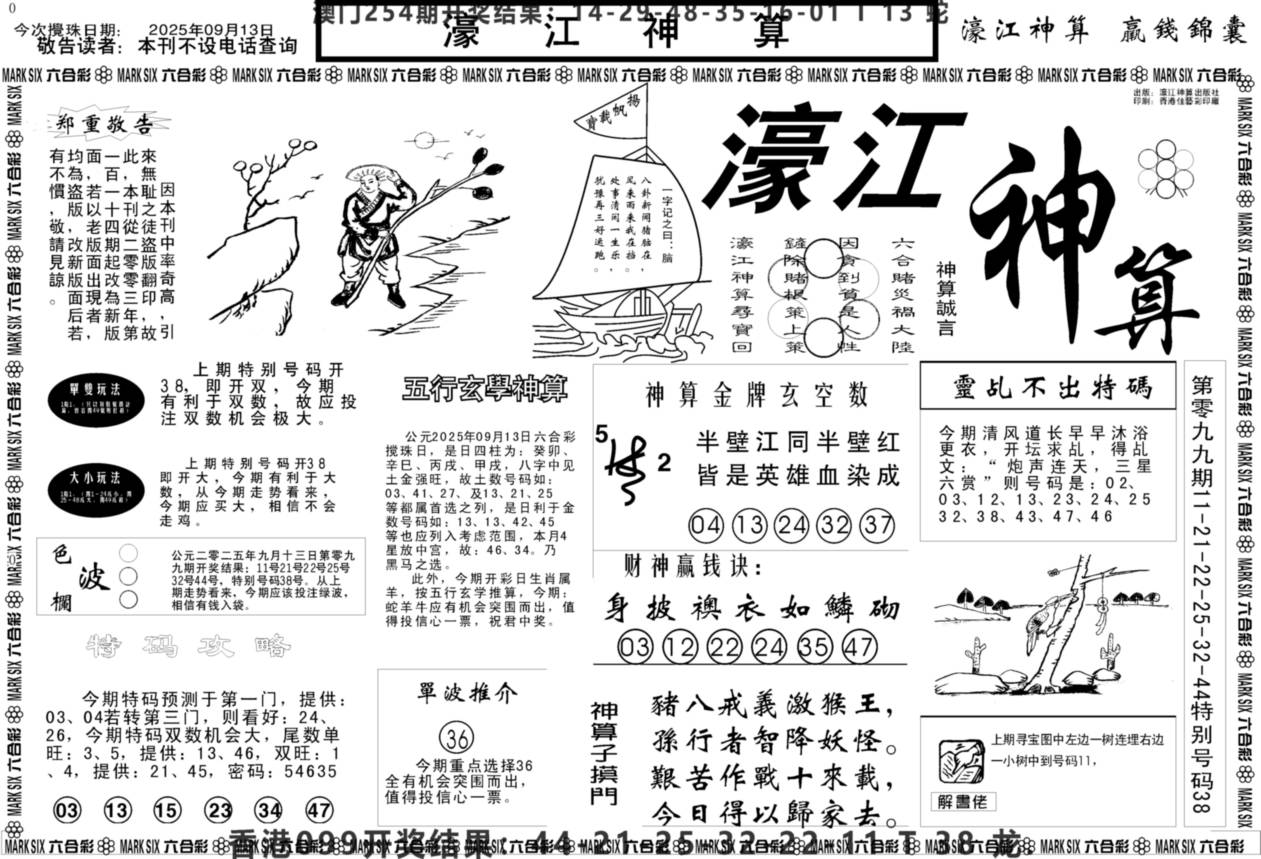 0
今次攪珠日期： 2025年09月13日
敬告读者：本刊不设电话查询
澳门254期开奖结果：14-29-48-35-16-01 T 13 蛇
濠 江 神 算
濠江神算 贏錢錦囊
MARK SIX 六合彩
出版：濠江神算出版社
印刷：香港佳藝彩印廠
郑重敬告
因本刊中奇高，引
來無恥之徒盜版翻印故
此，百本刊從二零零三年第
一百一十四期起改為新版，
面，若以老版面出現者
均為盜版，敬請見諒。
有不慣
揚帆載時
一字记之曰：脑
八卦新闻猪脑在，
风来雨来我在挡。
处事清闲一生乐，
犹豫再三好运跑。
濠江
神算
六合賭災禍大陸
因貪到貧是人性
鏟除賭根萊上策
濠江神算尋寶回
神算誠言
單雙玩法
上期特别号码开
38，即开双，今期
有利于双数，故应投
注双数机会极大。
大小玩法
上期特别号码开38
即开大，今期有利于大
数，从今期走势看来，
今期应买大，相信不会
走鸡。
色波欄
公元二零二五年九月十三日第零九
九期开奖结果：11号21号22号25号
32号44号，特别号码38号。从上
期走势看来，今期应该投注绿波，
相信有钱入袋。
特码攻略
今期特码预测于第一门，提供：
03、04若转第三门，则看好：24、
26，今期特码双数机会大，尾数单
旺：3、5，提供：13、46，双旺：1
、4，提供：21、45，密码：54635
03 13 15 23 34 47
五行玄學神算
公元2025年09月13日六合彩
搅珠日，是日四柱为：癸卯、
辛巳、丙戌、甲戌，八字中见
土金强旺，故土数号码如：
03、41、27、及13、21、25
等都属首选之列，是日利于金
数号码如：13、13、42、45
等也应列入考虑范围，本月4
星放中宫，故：46、34。乃
黑马之选。
此外，今期开彩日生肖属
羊，按五行玄学推算，今期：
蛇羊牛应有机会突围而出，值
得投信心一票，祝君中奖。
單波推介
36
今期重点选择36
全有机会突围而出，
值得投信心一票。
神算金牌玄空数
5
2
半壁江同半壁红
皆是英雄血染成
04 13 24 32 37
财神赢钱诀：
身披襖衣如鱗砌
03 12 22 24 35 47
神算子摸門
豬八戒義激猴王，
孫行者智降妖怪。
艱苦作戰十來載，
今日得以歸家去。
靈乩不出特碼
今期清风道长早早沐浴
更衣，开坛求乩，得乩
文：“炮声连天，三星
六赏”则号码是：02、
03、12、13、23、24、25
32、38、43、47、46
上期寻宝图中左边一树连埋右边
一小树中到号码11，
解畫佬
第零九九期11-21-22-25-32-44特别号码38
香港099开奖结果：44-21-25-32-22-11 T 38 龙